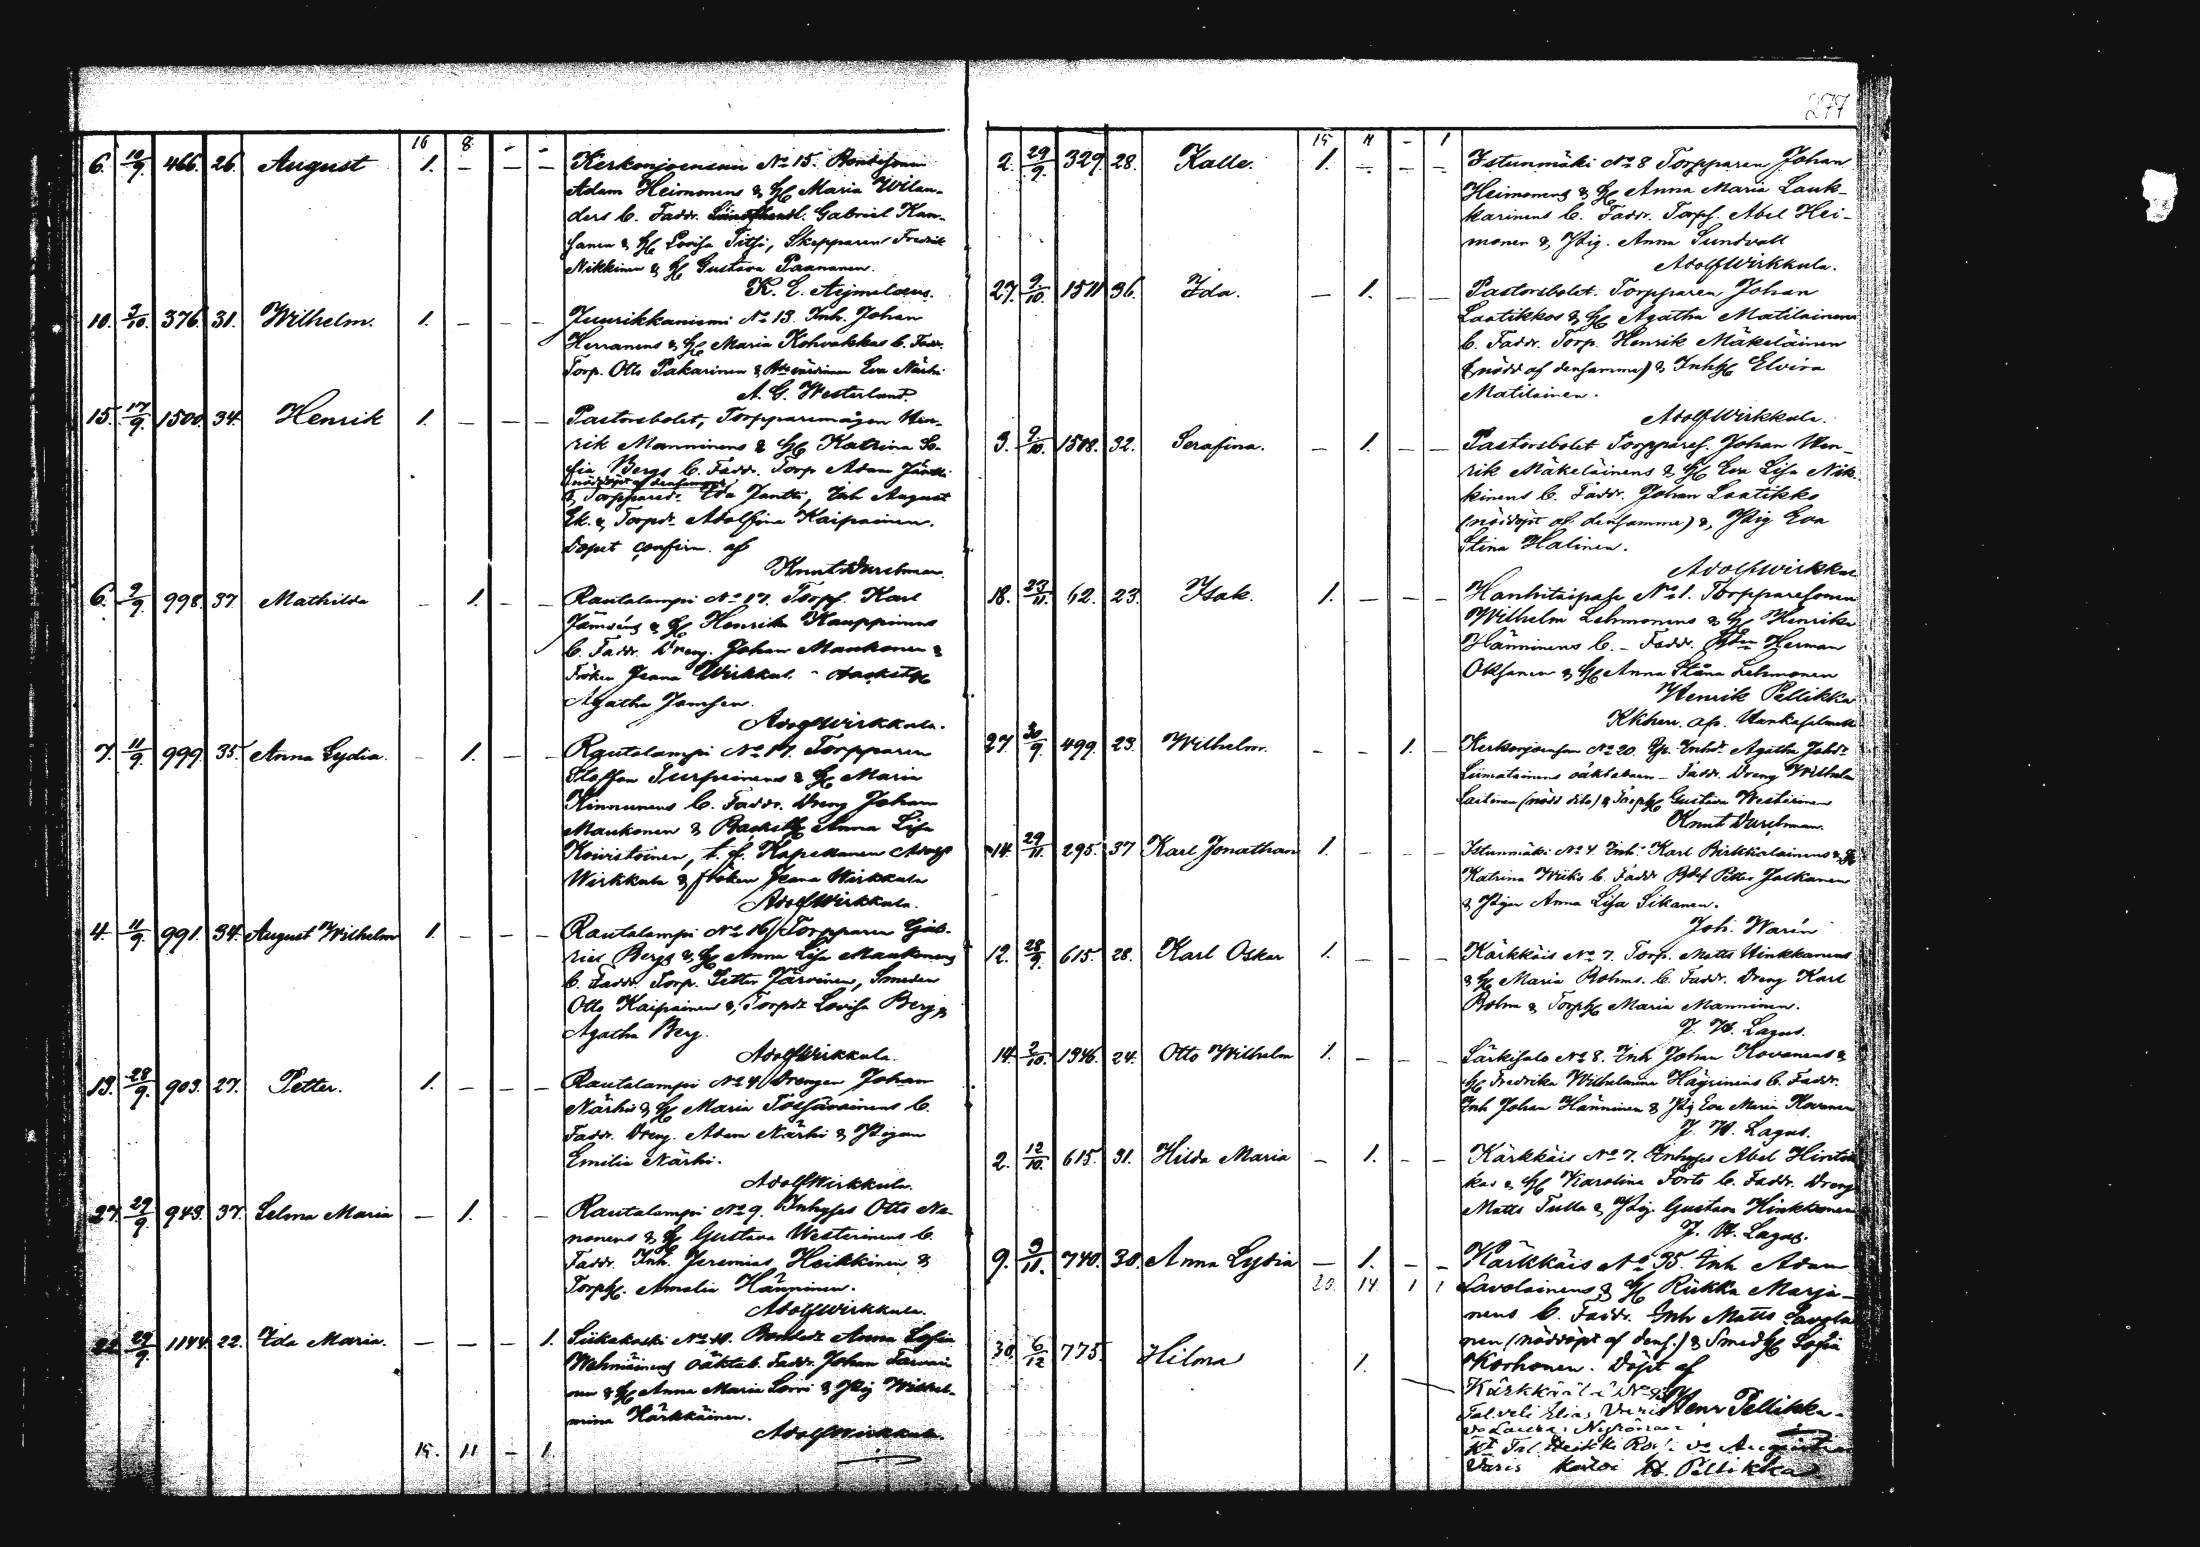 277
16 8 - -
6. 10/9. 466. 26. August 1. - - - Kerkonjoensuu No 15. Bondesonen
Adam Heimonens & H. Maria Wilan-
ders b. Faddr. Gabriel Kan-
sanen & H. Lovisa Titsi, Skepparen Fredrik
Nikkinen & H. Gustava Paananen.
K. E. Aejmelaeus.
10. 3/10. 376. 31. Wilhelm. 1. - - - Juurikkaniemi No 13. Inh. Johan
Herranens & H. Maria Kohvakkas b. Faddr.
Torp. Otto Pakarinen & Eva Närhi
A. G. Westerlund.
15. 17/9. 1500. 34. Henrik 1. - - - Pastorsbolet, Torpparemågen Hen-
rik Manninens & H. Katrina So-
fia Bergs b. Faddr. Torp Adam Jäntti
(nöddöpt af densamme)
& Torppared. Ida Jantti, Inh August
Ek. & Torpdr. Adolfina Kaipainen.
Dopet confirm. af
Knut Durchman.
6. 9/9. 998. 37. Mathilda - 1. - - Rautalampi No 17. Torpf. Karl
Jämséns & H. Henrika Kauppinens
b. Faddr. Dreng. Johan Maukonen &
Fröken Jeana Wirkkul. Backst.H.
Agatha Jamsen.
Adolf Wirkkula.
7. 11/9. 999. 35. Anna Lydia. - 1. - - Rautalampi No 17. Torpparen
Staffan Turpeinens & H. Maria
Kinnunens b. Faddr. Dreng Johan
Maukonen & Backst.H. Anna Lisa
Koivistoinen, t. f. Kapellanen Adolf
Wirkkula & fröken Jeana Wirkkula
Adolf Wirkkula.
4. 11/9. 991. 34. August Wilhelm 1. - - - Rautalampi No 16, Torpparen Gab-
riel Bergs & H. Anna Lisa Maukonens
b. Faddr. Torp. Petter Järvinen, Smeden
Otto Kaipainen &, Torpdr. Lovisa Berg &
Agatha Berg.
Adolf Wirkkula.
13. 28/9. 903. 27. Petter. 1. - - - Rautalampi No 4 Drengen Johan
Närhis & H. Maria Tossavainens b.
Faddr. Dreng. Adam Närhi & Pigan
Emilia Närhi.
Adolf Wirkkula.
27. 29/9. 943. 37. Selma Maria - 1. - - Rautalampi No 9. Inhyses Otto No-
nonens & H. Gustava Westerinens b.
Faddr. Inh. Jeremias Heikkinen &
TorpH. Amalia Hänninen.
Adolf Wirkkula.
29/9. 1144. 22. Ida Maria. - - - 1. Siikakoski No 10. Bondedr. Anna Sofia
oäktab. Faddr. Johan
& H. Anna Maria Lovi & Pig Wilhel-
mina Kärkkäinen.
Adolf Wirkkula.
19. 11 - 1.
19 11 - 1
2. 29/9. 329. 28. Kalle. 1. - - - Istunmäki No 8 Torpparen Johan
Heimonens & H. Anna Maria Lauk-
karinens b. Faddr. Torpf. Abel Hei-
monen & Pig. Anna Sundvall
Adolf Wirkkula.
27. 9/10. 1511 36. Ida. - 1. - - Pastorsbolet. Torpparen Johan
Laatikkos & H. Agatha Matilainens
b. Faddr. Torp. Henrik Mäkeläinen
(nödd af densamme) & Inh.H. Elvira
Matilainen.
Adolf Wirkkula.
3. 9/10. 1508. 32. Serafina. - 1. - - Pastorsbolet Torpparef. Johan Hen-
rik Mäkeläinens & H. Eva Lisa Nik-
kinens b. Faddr. Johan Laatikko
(nöddöpt af densamme) &, Pig Eva
Stina Halinen.
Adolf Wirkkul
18. 23/11. 62. 23. Isak. 1. - - - Hankitaipale No 1. Torpparesonen
Wilhelm Lehmonens & H. Henrika
Hänninens b. - Faddr. Herman
Oksanen & H. Anna Stina Lehmonen
Henrik Pellikka
Kkherr. ap. Hankasalmella
27 30/9. 499. 23. Wilhelm. - - 1. - Kerkonjoensuu No 20. Inhdr. Agatha Johdr.
Liimatainens oäkta barn - Faddr. Dreng Wilhelm
Laitinen (nödd dito) & TorpH. Gustava Westerinen
Knut Durchman.
14. 29/11. 295. 37 Karl Jonathan 1. - - - Istunmäki No 4. Inh. Karl Pirkkalainens & H.
Katrina Wiiks b. Faddr Petter Jalkanen
& Pigan Anna Lisa Sikanen.
Joh. Warén
12. 28/9. 615. 28. Karl Oskar 1. - - - Kärkkäis No 7. Torp. Matts Hinkkanens
& H. Maria Bohms. b. Faddr. Dreng Karl
Bohm & TorpH. Maria Manninen.
J. W. Lagus.
14. 2/10. 1346. 24. Otto Wilhelm 1. - - - Särkisalo No 8. Inh Johan Kovanens &
H. Fredrika Wilhelmina Häyrinens b. Faddr.
Inh Johan Hänninen & Pig Eva Maria Kovanen
J. W. Lagus.
2. 12/10. 615. 31. Hilda Maria - 1. - - Kärkkäis No 7. Inhyses Abel
kas & H. Karolina Forts b. Faddr. Dreng
Matts Tulla & Pig. Gustava Hinkkanen
J. W. Lagus.
9. 3/11. 740. 30. Anna Lydia - 1. - - Kärkkäis No 35. Inh Adam
20. 14 1 1 Savolainens & H. Riikka Marja-
nens b. Faddr. Inh Matts Savolai
nen (nöddöpt af dens.) & SmedH. Sofia
Korhonen. Döpt af
Henr Pellikka.
30. 6/12 775. Hilma 1. Kärkkäälä No
Tal. veli Elias Varis
vo Laura Nyrönen
Kt. Tal. Heikki vo Augusta
Varis Kastoi H. Pellikka